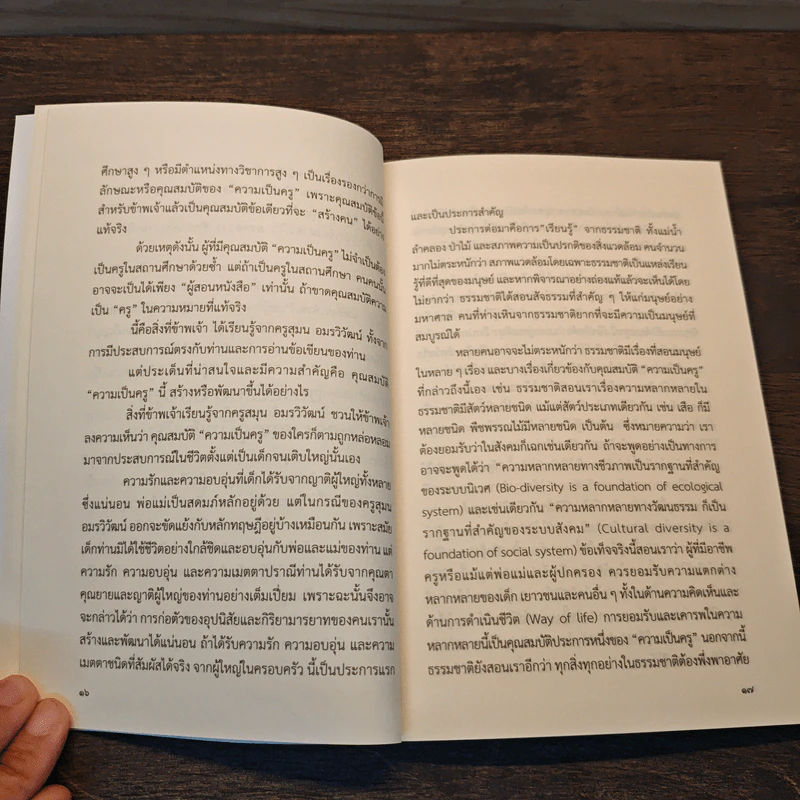 ศึกษาสูง ๆ หรือมีตำแหน่งทางวิชาการสูง ๆ เป็นเรื่องรองกว่าการมี
ลักษณะหรือคุณสมบัติของ “ความเป็นครู” เพราะคุณสมบัติข้อนี้
สำหรับข้าพเจ้าแล้วเป็นคุณสมบัติข้อเดียวที่จะ “สร้างคน” ได้อย่าง
แท้จริง
ด้วยเหตุดังนั้น ผู้ที่มีคุณสมบัติ “ความเป็นครู” ไม่จำเป็นต้อง
เป็นครูในสถานศึกษาด้วยซ้ำ แต่ถ้าเป็นครูในสถานศึกษา คนคนนั้น
อาจจะเป็นได้เพียง “ผู้สอนหนังสือ” เท่านั้น ถ้าขาดคุณสมบัติความ
เป็น “ครู” ในความหมายที่แท้จริง
นี้คือสิ่งที่ข้าพเจ้า ได้เรียนรู้จากครูสุมน อมรวิวัฒน์ ทั้งจาก
การมีประสบการณ์ตรงกับท่านและการอ่านข้อเขียนของท่าน
แต่ประเด็นที่น่าสนใจและมีความสำคัญคือ คุณสมบัติ
“ความเป็นครู” นี้ สร้างหรือพัฒนาขึ้นได้อย่างไร
สิ่งที่ข้าพเจ้าเรียนรู้จากครูสุมน อมรวิวัฒน์ ชวนให้ข้าพเจ้า
ลงความเห็นว่า คุณสมบัติ “ความเป็นครู” ของใครก็ตามถูกหล่อหลอม
มาจากประสบการณ์ในชีวิตตั้งแต่เป็นเด็กจนเติบใหญ่นั้นเอง
ความรักและความอบอุ่นที่เด็กได้รับจากญาติผู้ใหญ่ทั้งหลาย
ซึ่งแน่นอน พ่อแม่เป็นสดมภ์หลักอยู่ด้วย แต่ในกรณีของครูสุมน
อมรวิวัฒน์ ออกจะขัดแย้งกับหลักทฤษฎีอยู่บ้างเหมือนกัน เพราะสมัย
เด็กท่านมิได้ใช้ชีวิตอย่างใกล้ชิดและอบอุ่นกับพ่อและแม่ของท่าน แต่
ความรัก ความอบอุ่น และความเมตตาปราณีท่านได้รับจากคุณตา
คุณยายและญาติผู้ใหญ่ของท่านอย่างเต็มเปี่ยม เพราะฉะนั้นจึงอาจ
จะกล่าวได้ว่า การก่อตัวของอุปนิสัยและกิริยามารยาทของคนเรานั้น
สร้างและพัฒนาได้แน่นอน ถ้าได้รับความรัก ความอบอุ่น และความ
เมตตาชนิดที่สัมผัสได้จริง จากผู้ใหญ่ในครอบครัว นี้เป็นประการแรก
๑๖
และเป็นประการสำคัญ
ประการต่อมาคือการ“เรียนรู้” จากธรรมชาติ ทั้งแม่น้ำ
ลำคลอง ป่าไม้ และสภาพความเป็นปรกติของสิ่งแวดล้อม คนจำนวน
มากไม่ตระหนักว่า สภาพแวดล้อมโดยเฉพาะธรรมชาติเป็นแหล่งเรียน
รู้ที่ดีที่สุดของมนุษย์ และหากพิจารณาอย่างถ่องแท้แล้วจะเห็นได้โดย
ไม่ยากว่า ธรรมชาติได้สอนสัจธรรมที่สำคัญ ๆ ให้แก่มนุษย์อย่าง
มหาศาล คนที่ห่างเหินจากธรรมชาติยากที่จะมีความเป็นมนุษย์ที่
สมบูรณ์ได้
หลายคนอาจจะไม่ตระหนักว่า ธรรมชาติมีเรื่องที่สอนมนุษย์
ในหลาย ๆ เรื่อง และบางเรื่องเกี่ยวข้องกับคุณสมบัติ “ความเป็นครู”
ที่กล่าวถึงนี้เอง เช่น ธรรมชาติสอนเราเรื่องความหลากหลายใน
ธรรมชาติมีสัตว์หลายชนิด แม้แต่สัตว์ประเภทเดียวกัน เช่น เสือ ก็มี
หลายชนิด พืชพรรณไม้มีหลายชนิด เป็นต้น ซึ่งหมายความว่า เรา
ต้องยอมรับว่าในสังคมก็เฉกเช่นเดียวกัน ถ้าจะพูดอย่างเป็นทางการ
อาจจะพูดได้ว่า “ความหลากหลายทางชีวภาพเป็นรากฐานที่สำคัญ
ของระบบนิเวศ (Bio-diversity is a foundation of ecological
system) และเช่นเดียวกัน “ความหลากหลายทางวัฒนธรรม ก็เป็น
รากฐานที่สำคัญของระบบสังคม” (Cultural diversity is a
foundation of social system) ข้อเท็จจริงนี้สอนเราว่า ผู้ที่มีอาชีพ
ครูหรือแม้แต่พ่อแม่และผู้ปกครอง ควรยอมรับความแตกต่าง
หลากหลายของเด็ก เยาวชนและคนอื่น ๆ ทั้งในด้านความคิดเห็นและ
ด้านการดำเนินชีวิต (Way of life) การยอมรับและเคารพในความ
หลากหลายนี้เป็นคุณสมบัติประการหนึ่งของ “ความเป็นครู” นอกจากนี้
ธรรมชาติยังสอนเราอีกว่า ทุกสิ่งทุกอย่างในธรรมชาติต้องพึ่งพาอาศัย
๑๗